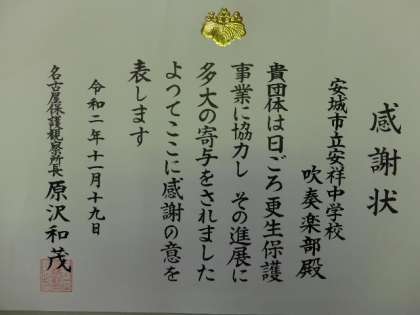 感謝状
安城市立安祥中学校
吹奏楽部殿
貴団体は日ごろ更生保護
事業に協力し その進展に
多大の寄与をされました
よってここに感謝の意を
表します
令和二年十一月十九日
名古屋保護観察所長 原沢和茂